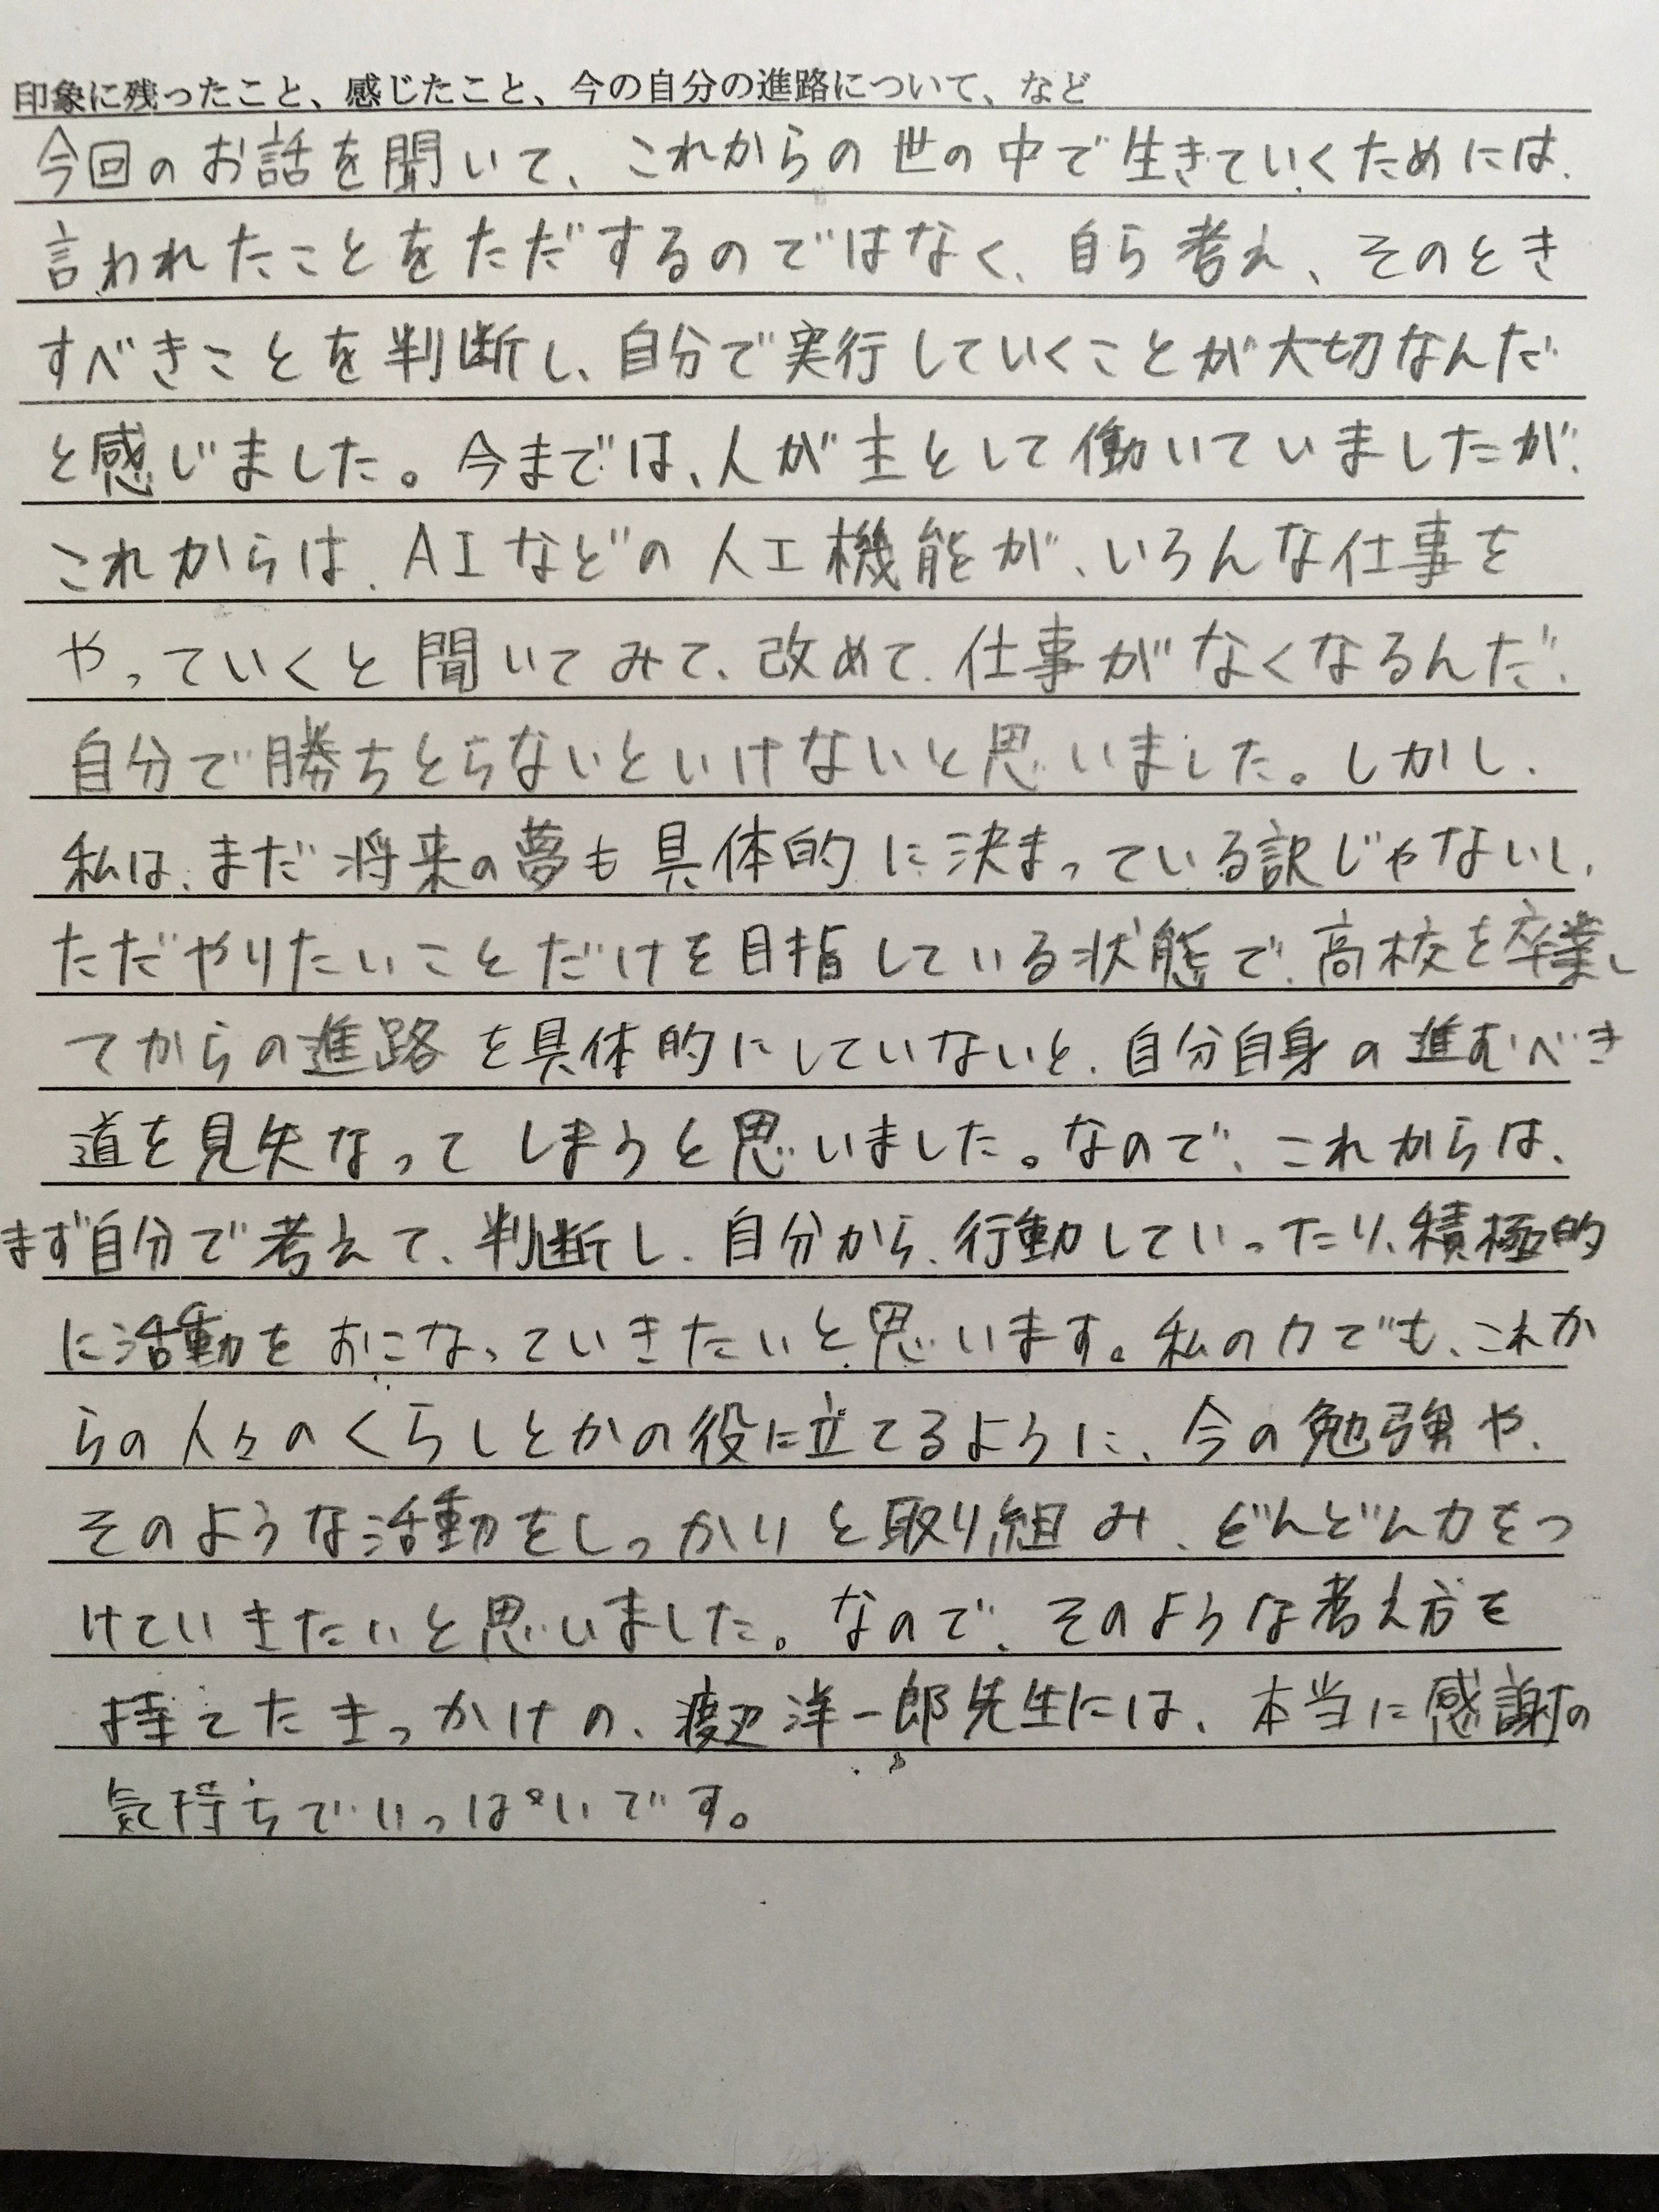 印象に残ったこと、感じたこと、今の自分の進路について、など
今回のお話を聞いて、これからの世の中で生きていくためには、
言われたことをただするのではなく、自ら考え、そのとき
すべきことを判断し、自分で実行していくことが大切なんだ
と感じました。今までは、人が主として働いていましたが、
これからは、AIなどの人工機能が、いろんな仕事を
やっていくと聞いてみて、改めて、仕事がなくなるんだ、
自分で勝ちとらないといけないと思いました。しかし、
私は、まだ将来の夢も具体的に決まっている訳じゃないし、
ただやりたいことだけを目指している状態で、高校を卒業し
てからの進路を具体的にしていないと、自分自身の進むべき
道を見失なってしまうと思いました。なので、これからは、
まず自分で考えて、判断し、自分から、行動していったり、積極的
に活動をおこなっていきたいと思います。私の力でも、これか
らの人々のくらしとかの役に立てるように、今の勉強や、
そのような活動をしっかりと取り組み、どんどん力をつ
けていきたいと思いました。なので、そのような考え方を
持てたきっかけの、渡辺洋一郎先生には、本当に感謝の
気持ちでいっぱいです。